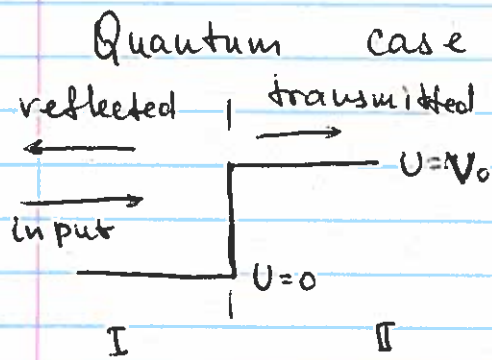 Quantum case
reflected transmitted
U=V₀
input
U=0
I II